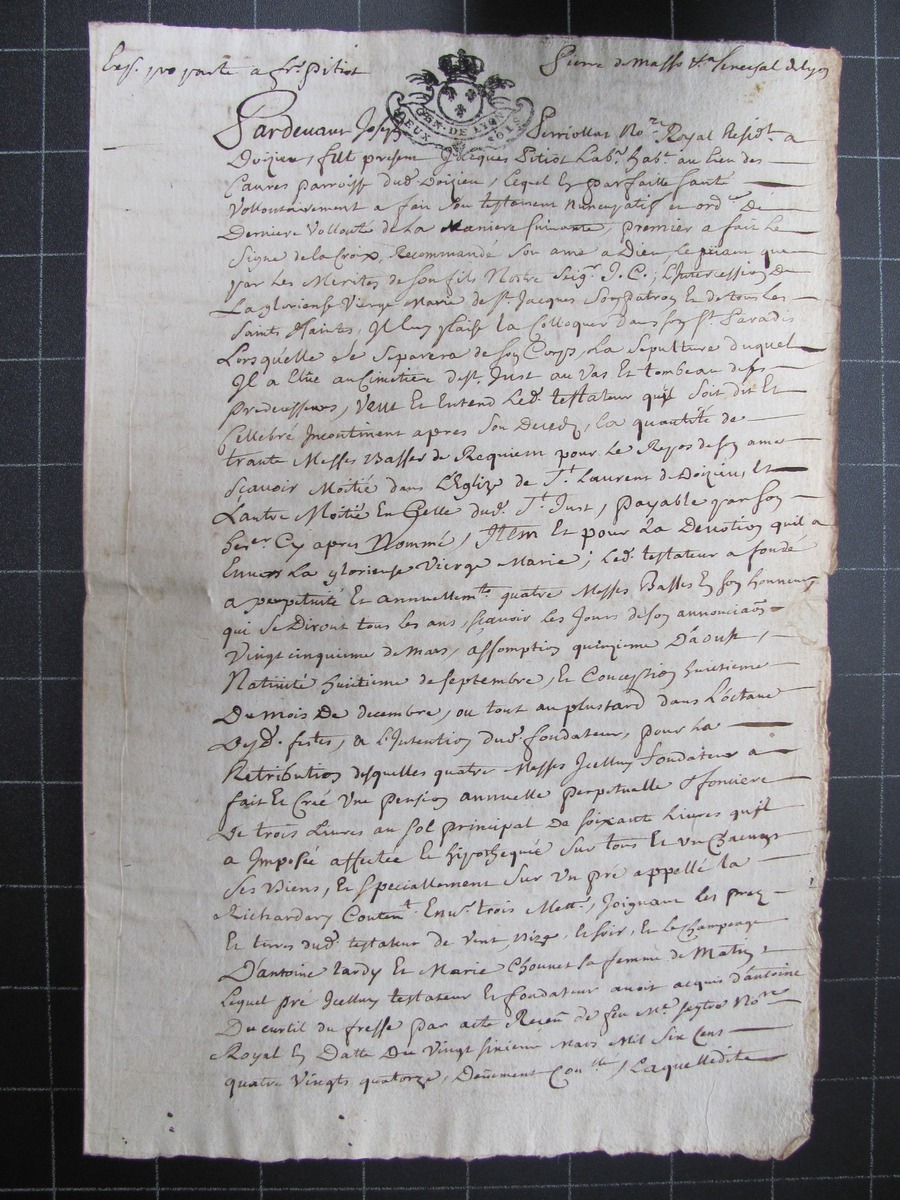 pre parte a Sr. Pitiot
Pierre de Masso Senechal de Lyon
GEN. DE LYON
DEUX SOLS
Pardevant Joseph Perriollat No.re Royal Resid.t a
Doizieu, fut present Jacques Pitiot Lab.r hab.t au lieu des
Caures parroisse dud. Doizieu, lequel En parfaitte santé
Vollontairement a fait Son testament Nuncupatif et ord.ce De
Derniere Vollonté de La Maniere Suivante, premier a fait Le
Signe de la Croix, Recommandé Son ame a Dieu, le priant que
par les Merites de son fils Notre Seig.r J. C., L'Intercession De
La glorieuse Vierge Marie de St. Jacques Son patron Et de tous les
Saints & Saintes, Il luy plaise la Colloquer dans son St. Paradis
Lorsquelle Se Separera de son Corps, La Sepulture duquel
Il a Elue au Cimetiere de St. Just au Vas Et tombeau de ses
predecesseurs, Veut Et Entend Led. testateur qu'il Soit dit Et
Cellebré Incontinent apres Son Deceds, la quantité de
trante Messes Basses de Requiem pour Le Repos de son ame
Scavoir Moitié dans L'Eglize de St. Laurent de Doizieu, Et
L'autre Moitié En Celle dud. St. Just, payable par son
her.er Cy apres Nommé, Item Et pour La Devotion qu'il a
Envers La glorieuse Vierge Marie; Led. testateur a fondé
a perpetuité Et annuellem.t quatre Messes Basses En son honneur
qui Se Diront tous les ans, scavoir les Jours de son annonciaon
Vingt cinquieme de Mars, assomption quinzieme D'aoust,
Nativité huitieme de septembre, Et Conception huitieme
Du mois De decembre, ou tout au plustard dans L'octave
Desd. festes, & L'Intention dud. fondateur, pour La
Retribution desquelles quatre Messes Icelluy fondateur a
fait Et Créé Une pension annuelle perpetuelle & fonciere
De trois Livres au Sol principal De Soixante Livres qu'il
a Imposée affectée Et hipothequée Sur tous Et un Chacuns
Ses Biens, Et Speciallement Sur Un pré appellé la
Richardery Conten.t Env.n trois Mett., Joignant les prez
Et terres dud. testateur de Vent Bize & Soir, Et le Champeage
D'antoine Tardy Et Marie Chounet sa femme de Matin
Lequel pré Icelluy testateur Et fondateur avoit acquis d'antoine
Du curtil du fresse par acte Receu de feu Me. Seytre No.re
Royal En Datte Du Vingt Sixieme Mars Mil Six Cens
quatre Vingts quatorze, Deüement Con.llé, Laquelledite